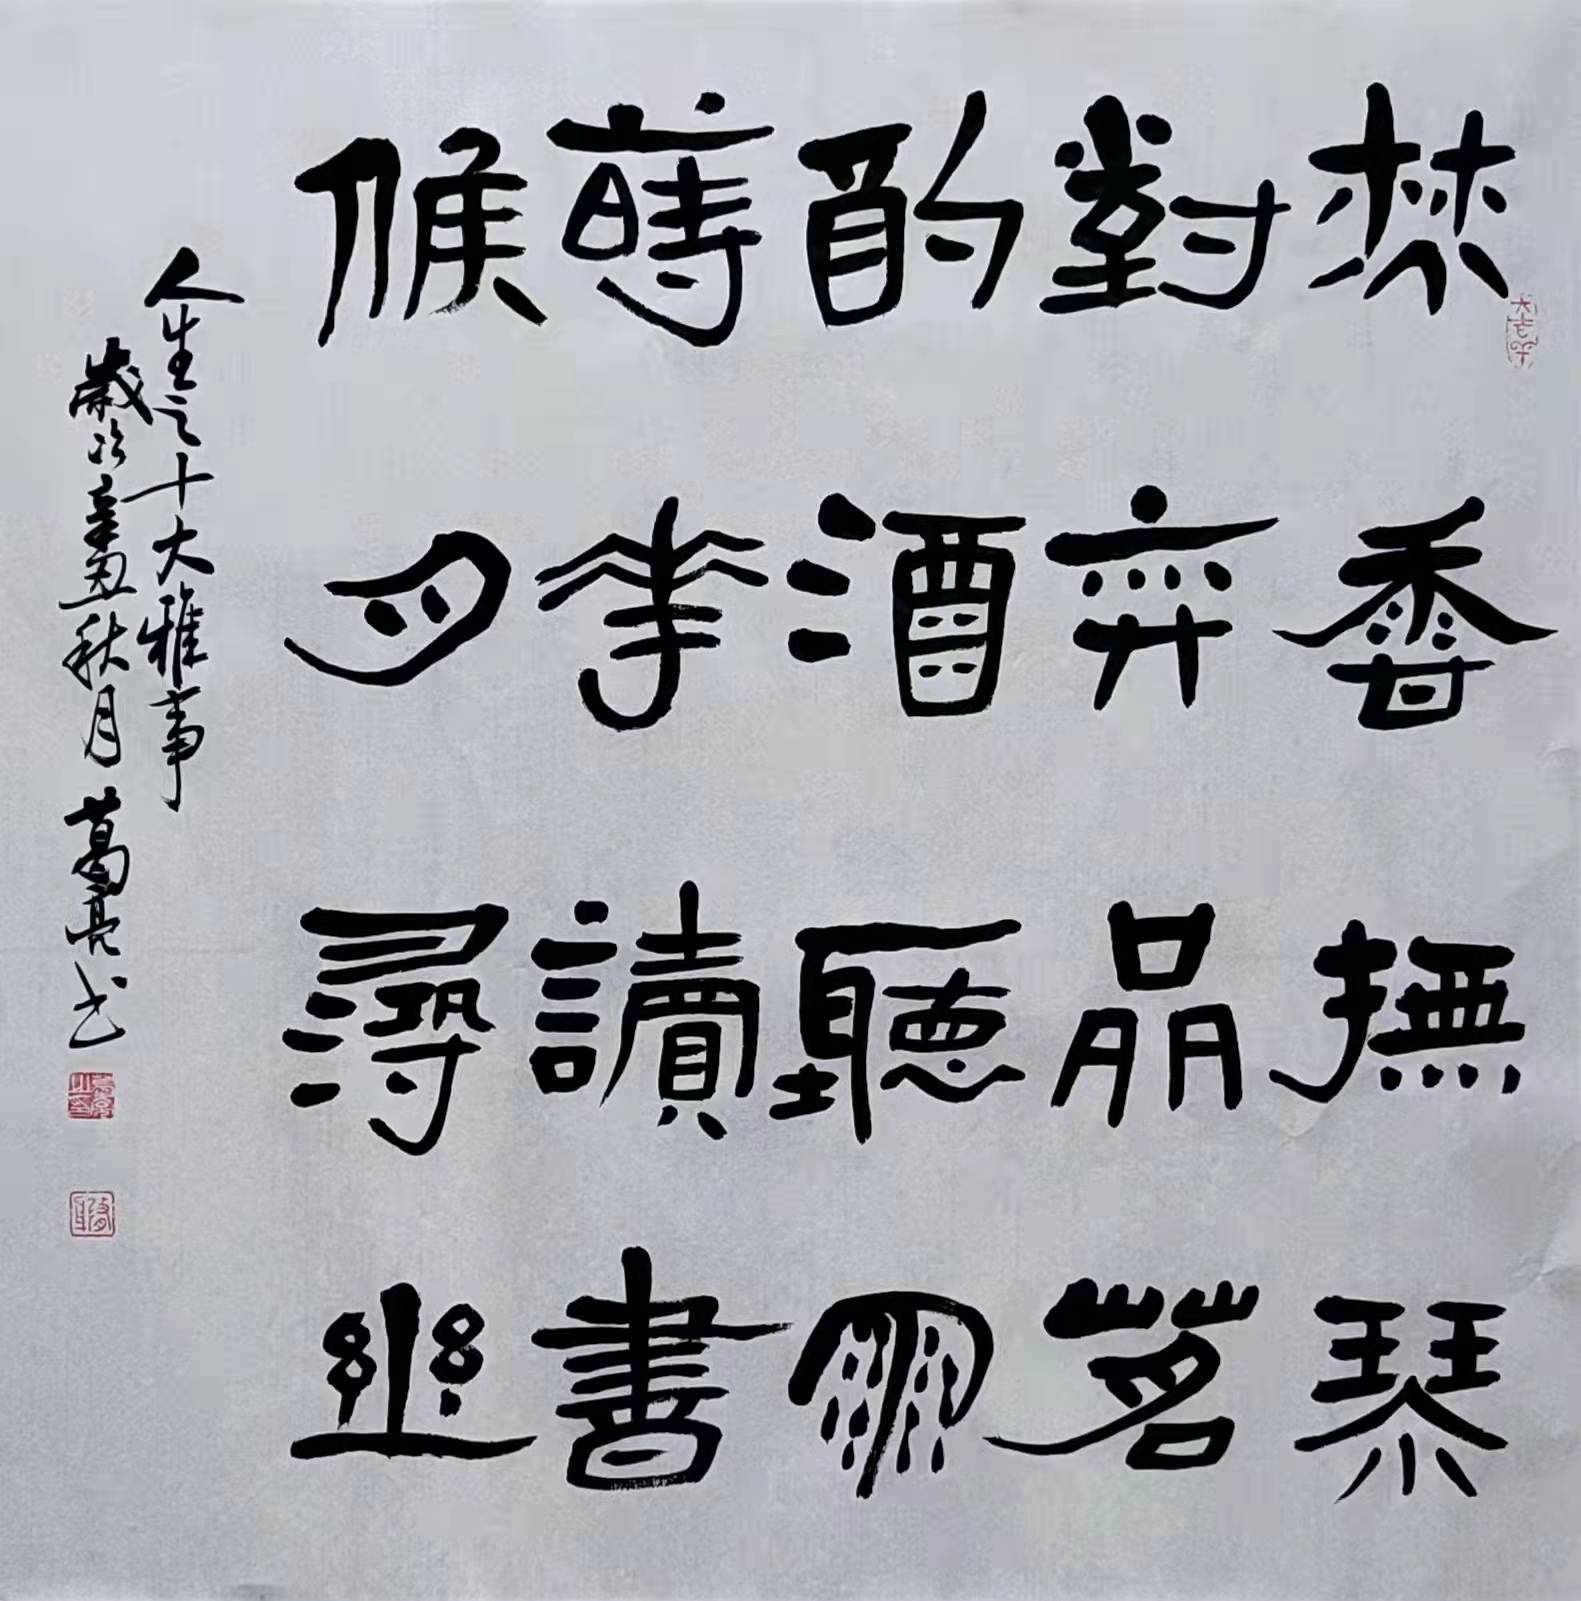 大吉羊
焚香撫琴
對弈品茗
酌酒聽雨
蒔花讀書
候月尋幽
人生之十大雅事
歲次辛丑秋月 葛亮书